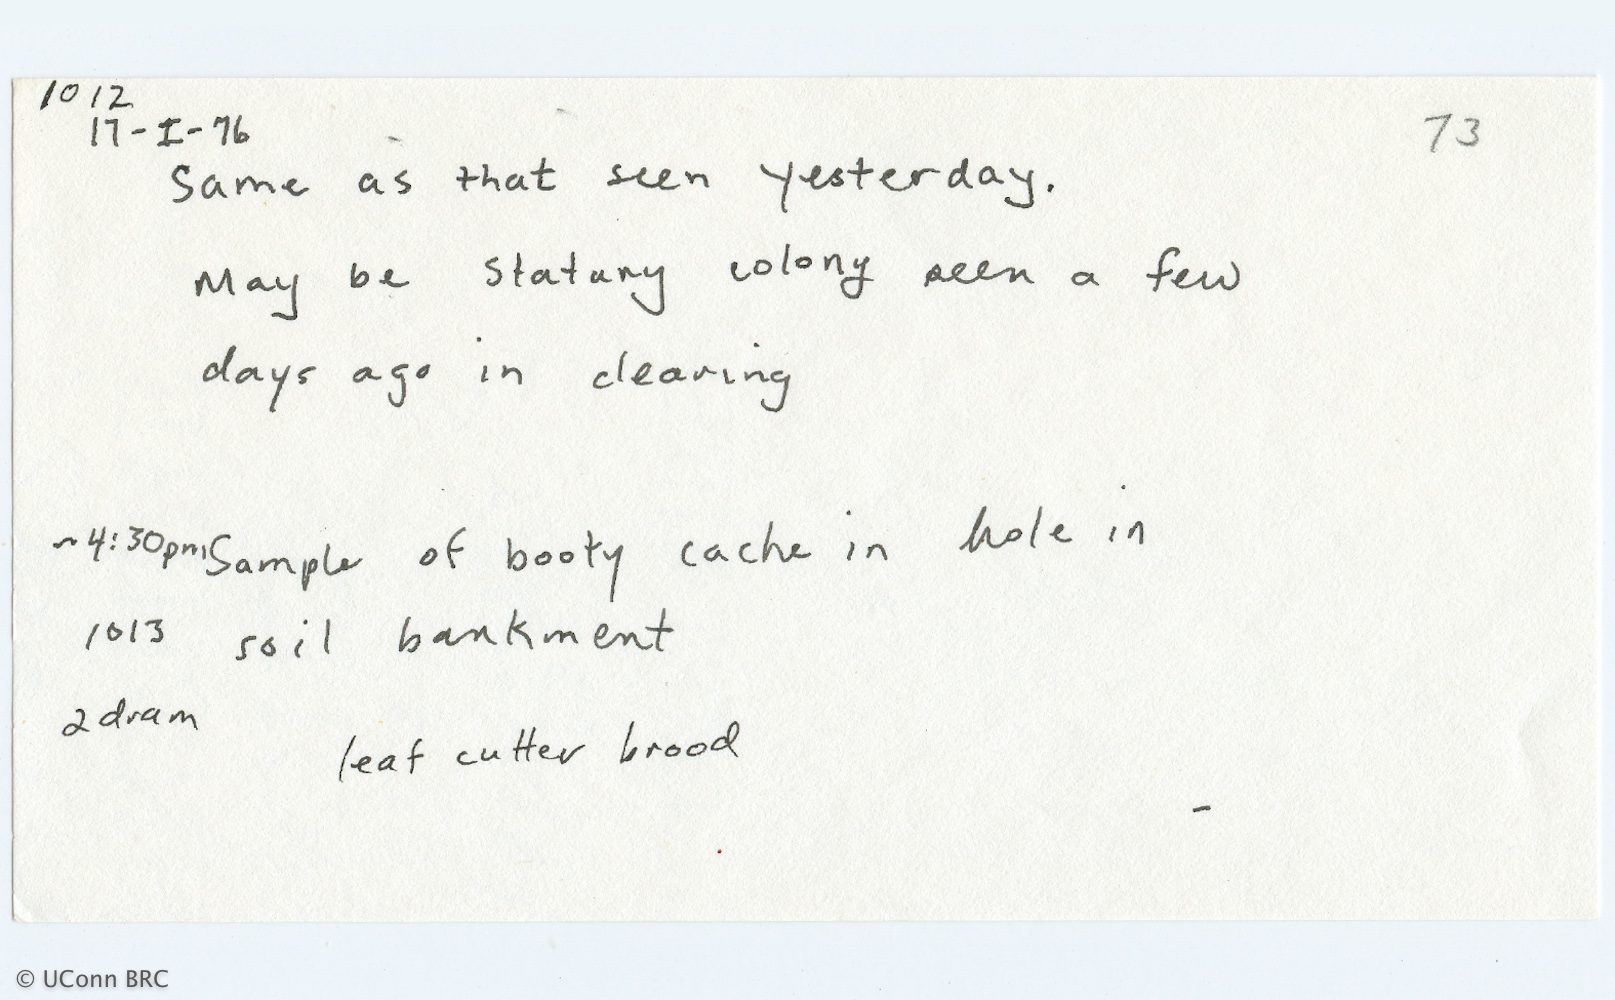 1012
17-I-76
73
Same as that seen yesterday.
May be Statary colony seen a few
days ago in clearing
~4:30pm Sample of booty cache in hole in
1013 soil bankment
2 dram
leaf cutter brood
© UConn BRC